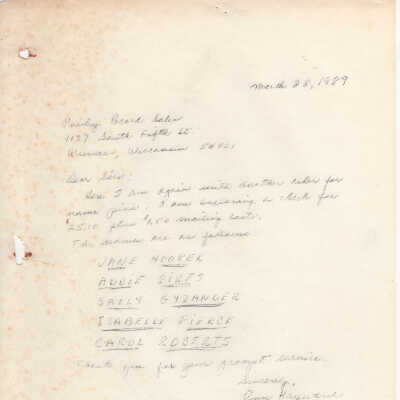 March 28, 1989
Board Sales
1137 South Fifth St.
Wisconsin
Dear Sirs:
Here I am again with another order for
name pins. I am enclosing a check for
$25.10 plus mailing costs.
The names are as follows:
JANE HOOPER
ADDIE
SALLY GYZANGER
ISABELLE PIERCE
CAROL ROBERTS
Thank you for your prompt service.
Sincerely,